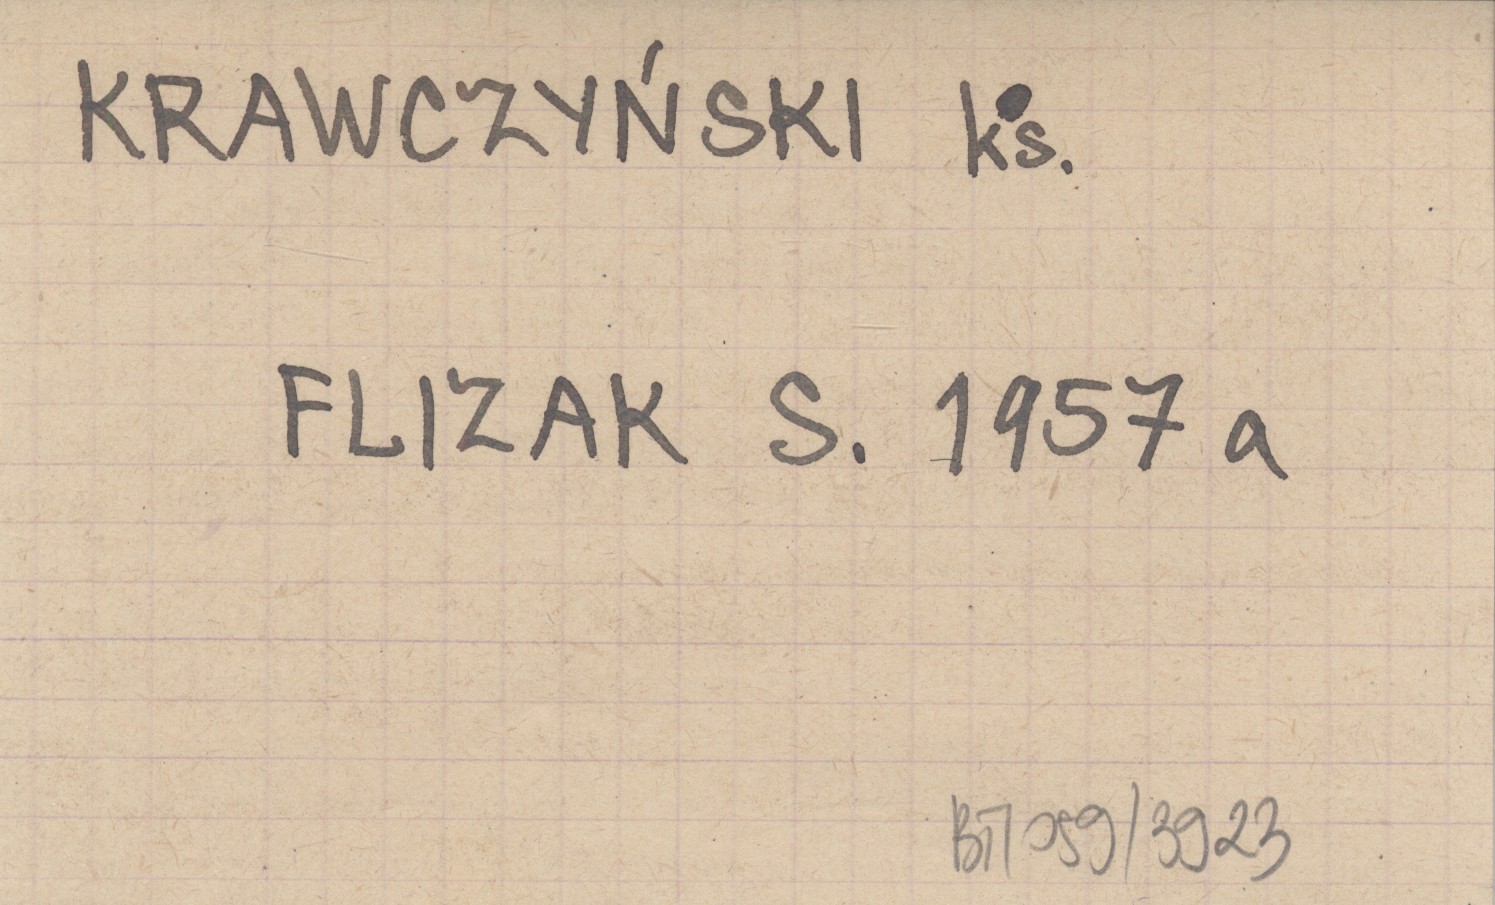 KRAWCZYŃSKI ks.
FLIZAK S. 1957 a
059/3923